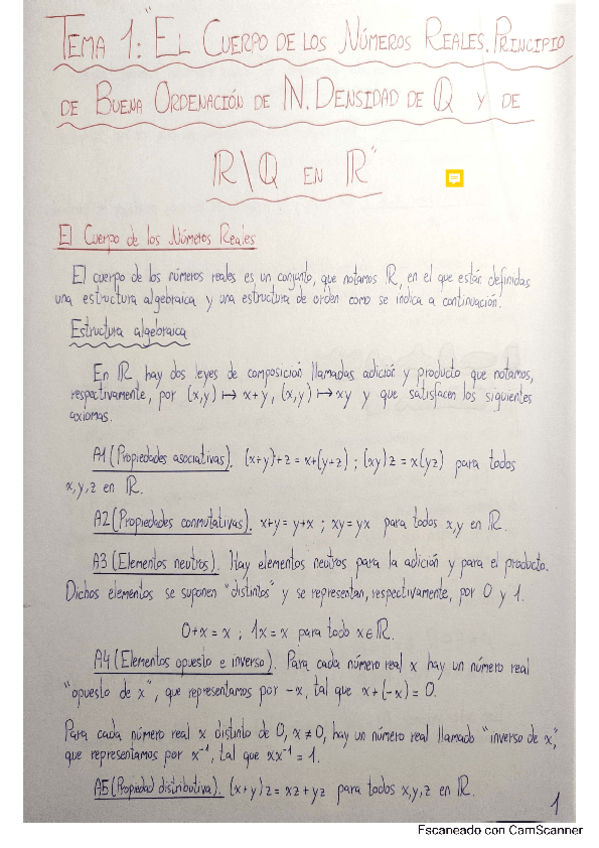 TEMA 1: "EL CUERPO DE LOS NÚMEROS REALES. PRINCIPIO
DE BUENA ORDENACIÓN DE ℕ. DENSIDAD DE ℚ Y DE
ℝ\ℚ EN ℝ"
El Cuerpo de los Números Reales
El cuerpo de los números reales es un conjunto, que notamos ℝ, en el que están definidas
una estructura algebraica y una estructura de orden como se indica a continuación.
Estructura algebraica
En ℝ hay dos leyes de composición llamadas adición y producto que notamos,
respectivamente, por (x,y) ↦ x+y, (x,y) ↦ xy y que satisfacen los siguientes
axiomas.
A1 (Propiedades asociativas). (x+y)+z = x+(y+z) ; (xy)z = x(yz) para todos
x,y,z en ℝ.
A2 (Propiedades conmutativas). x+y = y+x ; xy = yx para todos x,y en ℝ.
A3 (Elementos neutros). Hay elementos neutros para la adición y para el producto.
Dichos elementos se suponen "distintos" y se representan, respectivamente, por 0 y 1.
0+x = x ; 1x = x para todo x∈ℝ.
A4 (Elementos opuesto e inverso). Para cada número real x hay un número real
"opuesto de x", que representamos por -x, tal que x+(-x) = 0.
Para cada número real x distinto de 0, x≠0, hay un número real llamado "inverso de x",
que representamos por x⁻¹, tal que xx⁻¹ = 1.
A5 (Propiedad distributiva). (x+y)z = xz+yz para todos x,y,z en ℝ.
1
Escaneado con CamScanner